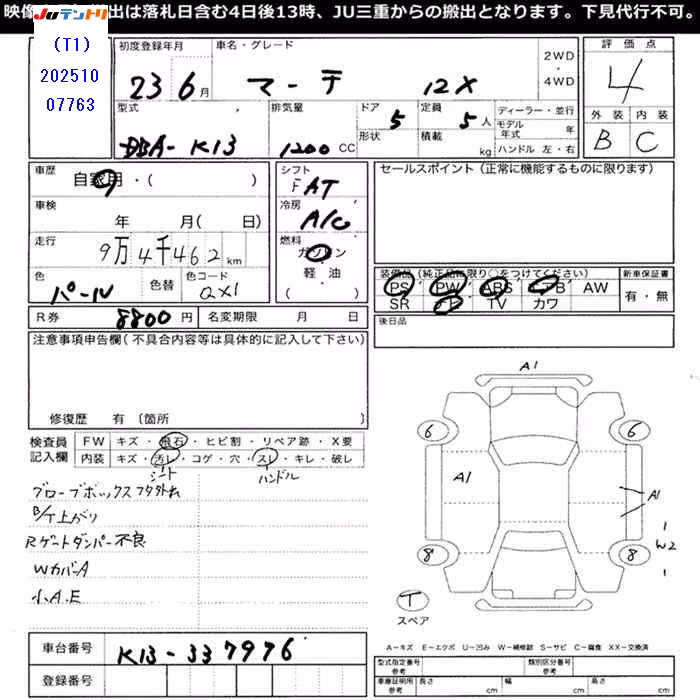 映像 出は落札日含む4日後13時、JU三重からの搬出となります。下見代行不可。
JUテントリ
(T1)
202510
07763
初度登録年月 車名・グレード
23 6月 マーチ 12X 2WD・4WD
評価点
4
外装 内装
B C
型式 排気量 ドア 定員 ディーラー・並行
DBA-K13 1200 CC 5 5人 モデル年式 年
形状 積載 kg ハンドル 左・右
車歴 シフト セールスポイント(正常に機能するものに限ります)
自家用・( ) FAT
車検 冷房
年 月( 日) A/C
走行 燃料
9万4千462km ガソリン
軽油
・( )
色 色替 色コード
パール QX1
装備品(純正品に限り○をつけてください) 新車保証書
PS PW ABS エアB AW 有・無
SR ナビ TV カワ
R券 8800円 名変期限 月 日
後日品
注意事項申告欄(不具合内容等は具体的に記入して下さい)
修復歴 有〔箇所 〕
検査員記入欄
FW キズ・飛石・ヒビ割・リペア跡・X要
内装 キズ・汚レ・コゲ・穴・スレ・キレ・破レ
シート ハンドル
グローブボックスフタ外れ
B/T上がり
Rゲートダンパー不良
WカバーA
小A.E
A1
6 6
A1 A1
W2
8 8
T
スペア
A-キズ E-エクボ U-凹み W-補修跡 S-サビ C-腐食 XX-交換済
車台番号 K13-337976
登録番号
型式指定番号 参考 類別区分番号 参考
車庫証明用 参考 長さ cm 幅 cm 高さ cm